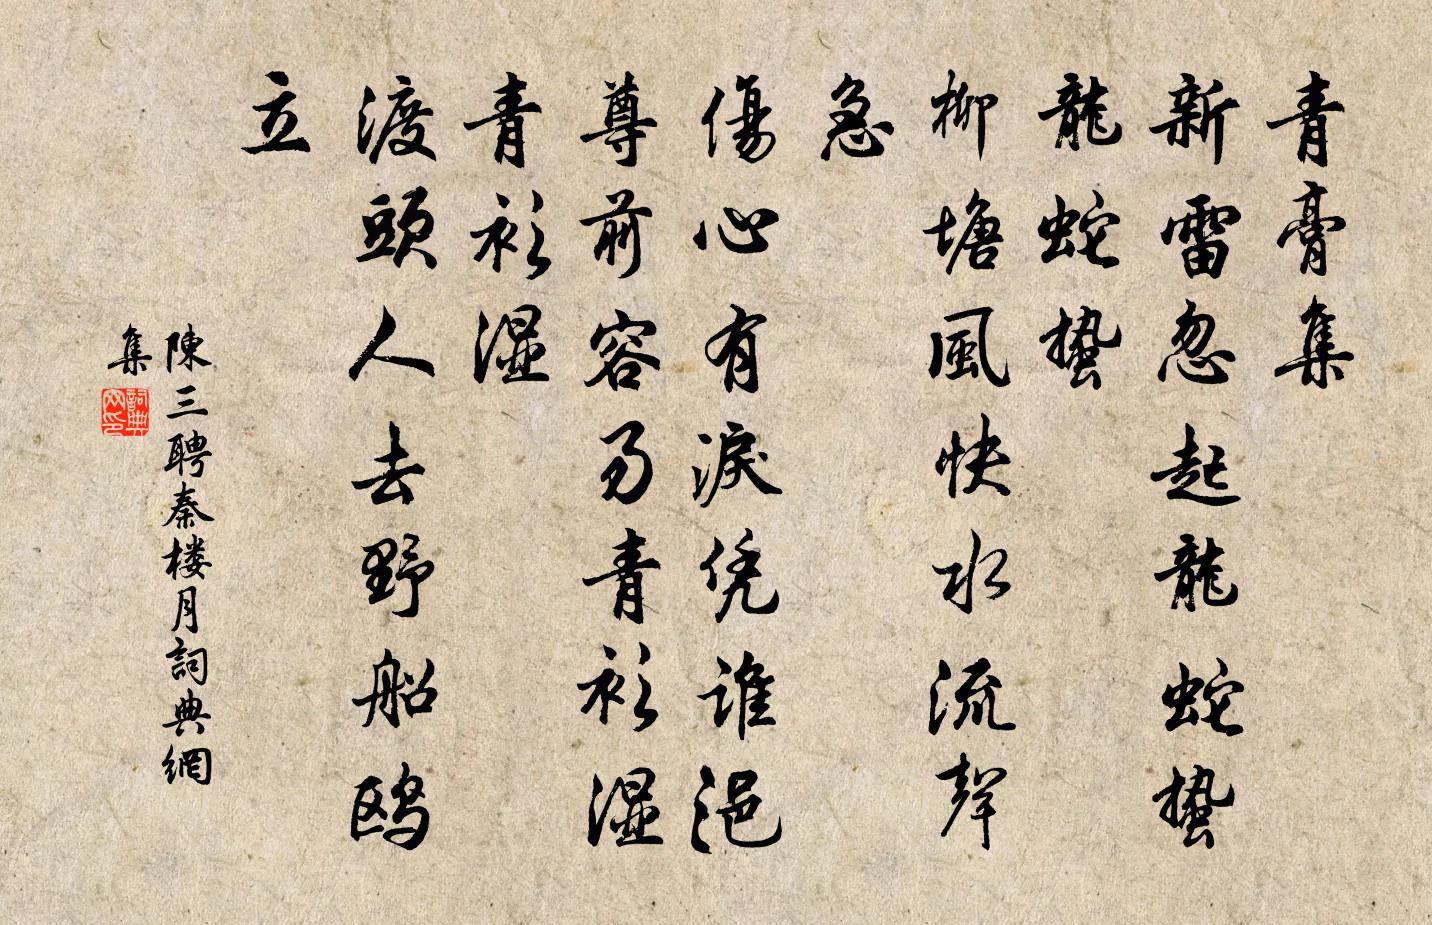 青膏集
新雷忽起龍蛇蟄
龍蛇蟄
柳塘風快水流聲
急
傷心有淚凭誰浥
尊前容易青衫湿
青衫湿
渡頭人去野船鸥
立
陳三聘秦楼月詞典網
集
詞典
网印